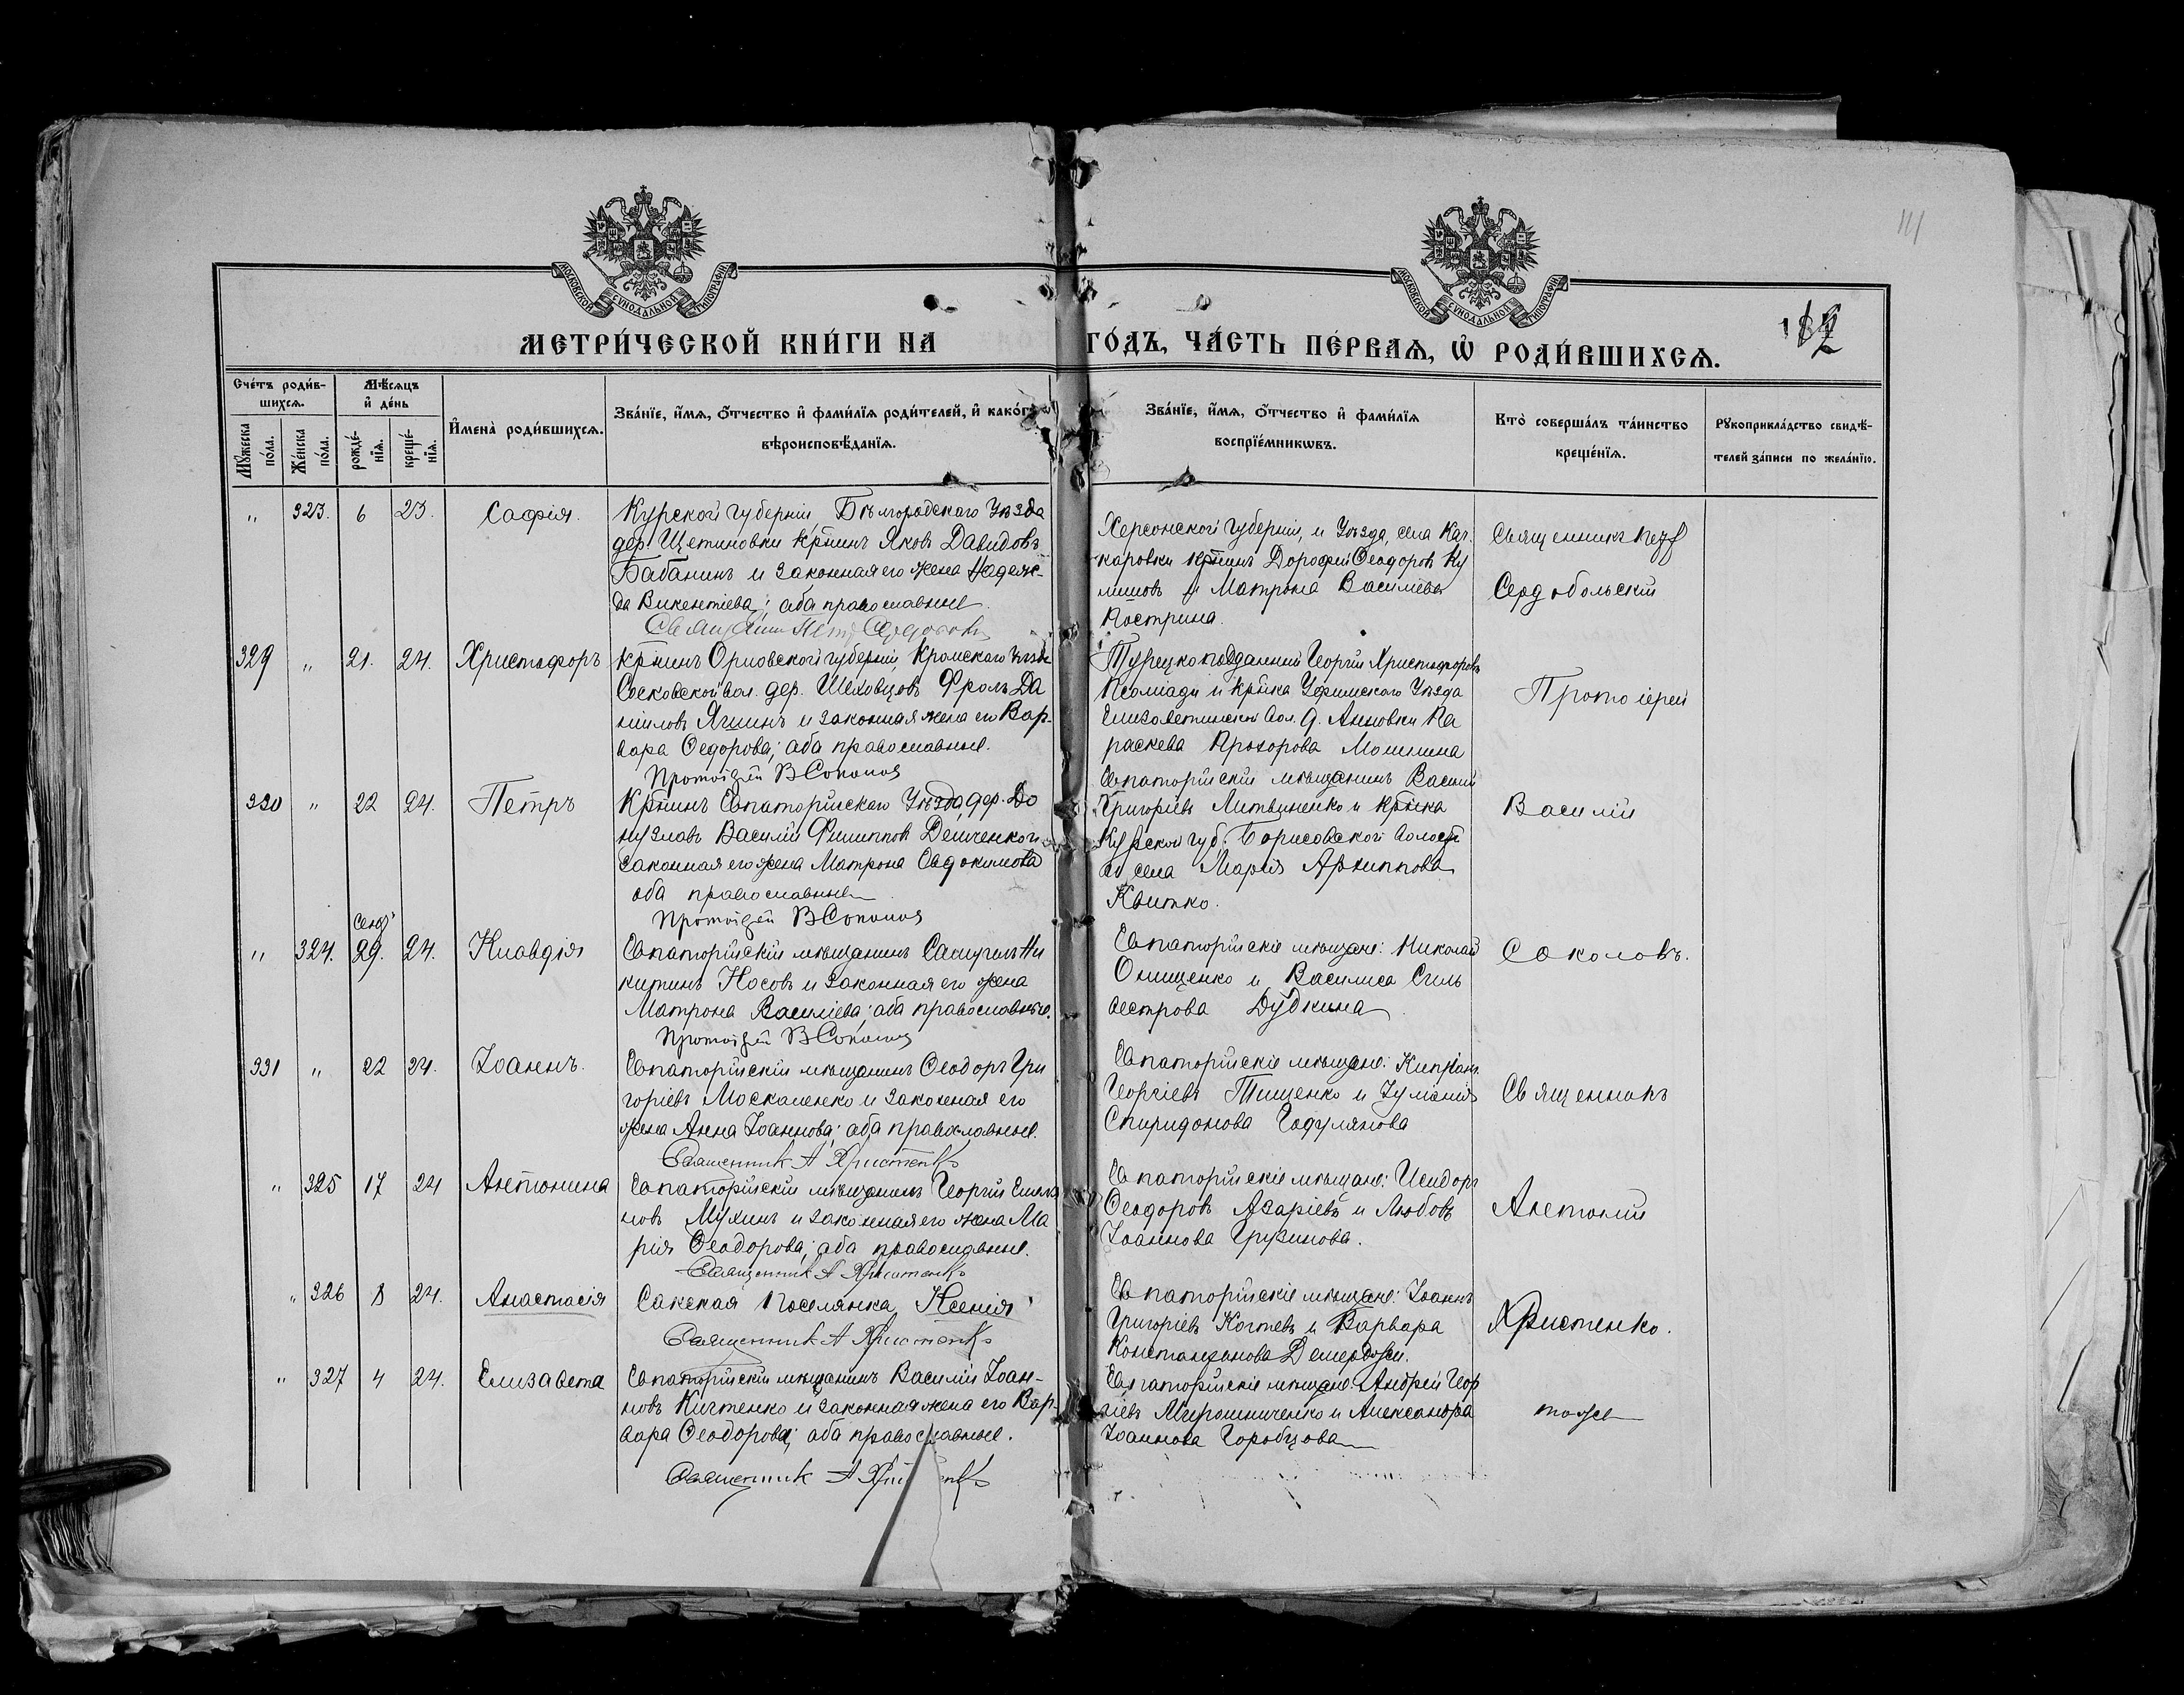 111
МОСКОВСКОЙ СѴНОДАЛЬНОЙ ТИПОГРАФІИ
МОСКОВСКОЙ СѴНОДАЛЬНОЙ ТИПОГРАФІИ
МЕТРИ́ЧЕСКОЙ КНИ́ГИ НА ГО́ДЪ, ЧА́СТЬ ПЕ́РВАѦ, Ѡ҆ РОДИ́ВШИХСѦ.
Сче́тъ роди́вшихсѧ.
Мꙋ́жеска по́ла.
Же́нска по́ла.
Мѣ́сѧцъ и҆ де́нь
рожде́нїѧ.
креще́нїѧ.
И҆мена̀ роди́вшихсѧ.
Зва́нїе, и҆́мѧ, ѻ҆́тчество и҆ фами́лїѧ роди́телей, и҆ како́гѡ
вѣроисповѣ́данїѧ.
Зва́нїе, и҆́мѧ, ѻ҆́тчество и҆ фами́лїѧ
воспрїе́мникѡвъ.
Кто̀ соверша́лъ та́инство
креще́нїѧ.
Рꙋкоприкла́дство свидѣ́-
телей за́писи по жела́нїю.
" 323. 6 23. Софія.
Курской губерніи, Бѣлгородскаго Уѣзда
дер. Щетиновки кр̃нинъ Яковъ Давидовъ
Бабанинъ и законная его жена Надеж-
да Викентіева; оба православные.
Херсонской губерніи, и Уѣзда, села Кач
каровки кр̃нинъ Дорофей Ѳеодоровъ Ку
лишовъ и Матрона Васильева
Кострина.
Священникъ Петръ
Сердобольскій
329 " 21. 24. Христофоръ
Кр̃нинъ Орловской губерніи, Кромскаго Уѣзда
Сосковской вол. дер. Шеховцовъ Фролъ Да
ниловъ Яшинъ и законная жена его Вар-
вара Ѳедорова; оба православные.
Протоіерей В Соколов
Турецкоподданный Георгій Христофоровъ
Псоміади и кр̃нка Уфимскаго Уѣзда
вол. д. Анновки Па
раскева Прохорова
Протоіерей
330 " 22 24. Петръ
Кр̃нинъ Евпаторійскаго Уѣзда, дер. До
нузлавъ Василій Филипповъ Демченко и
законная его жена Матрона Евдокимова
оба православные
Протоіерей В Соколов
Евпаторійскій мѣщанинъ Василій
Григорьевъ Литвиненко и кр̃нка
Курской губ. Борисовской волости
села Марія Архиппова
Квитко.
Василій
Сент.
" 324. 29. 24. Клавдія
Евпаторійскій мѣщанинъ Самуилъ Ни
китинъ Носовъ и законная его жена
Матрона Васильева; оба православные.
Протоіерей В Соколов
Евпаторійскіе мѣщане: Николай
Онищенко и Василиса Силь
вестрова Дудкина
Соколовъ.
331 " 22 24. Іоаннъ.
Евпаторійскій мѣщанинъ Ѳеодоръ Гри
горьевъ Москаленко и законная его
жена Анна Іоаннова; оба православные.
Священникъ А Христенко
Евпаторійскіе мѣщане: Кипріанъ
Георгіевъ Тищенко и Іуліанія
Спиридонова
Священникъ
" 325 17 24 Антонина
Евпаторійскій мѣщанинъ Георгій Емелья
новъ Мухинъ и законная его жена Ма
рія Ѳеодорова; оба православные.
Священникъ А Христенко
Евпаторійскіе мѣщане: Исидоръ
Ѳеодоровъ Азаріевъ и Любовь
Іоаннова Грузинова.
Антоній
" 326 8 24. Анастасія
Сакская поселянка Ксенія
Священникъ А Христенко
Евпаторійскіе мѣщане: Іоаннъ
Григорьевъ Когтевъ и Варвара
Константинова
Христенко.
" 327 4 24. Елизавета
Евпаторійскій мѣщанинъ Василій Іоан-
новъ Кихтенко и законная жена его Вар-
вара Ѳеодорова; оба православные.
Священникъ А Христенко
Евпаторійскіе мѣщане: Андрей Геор
гіевъ Мирошниченко и Александра
Іоаннова Горобцова
тоже